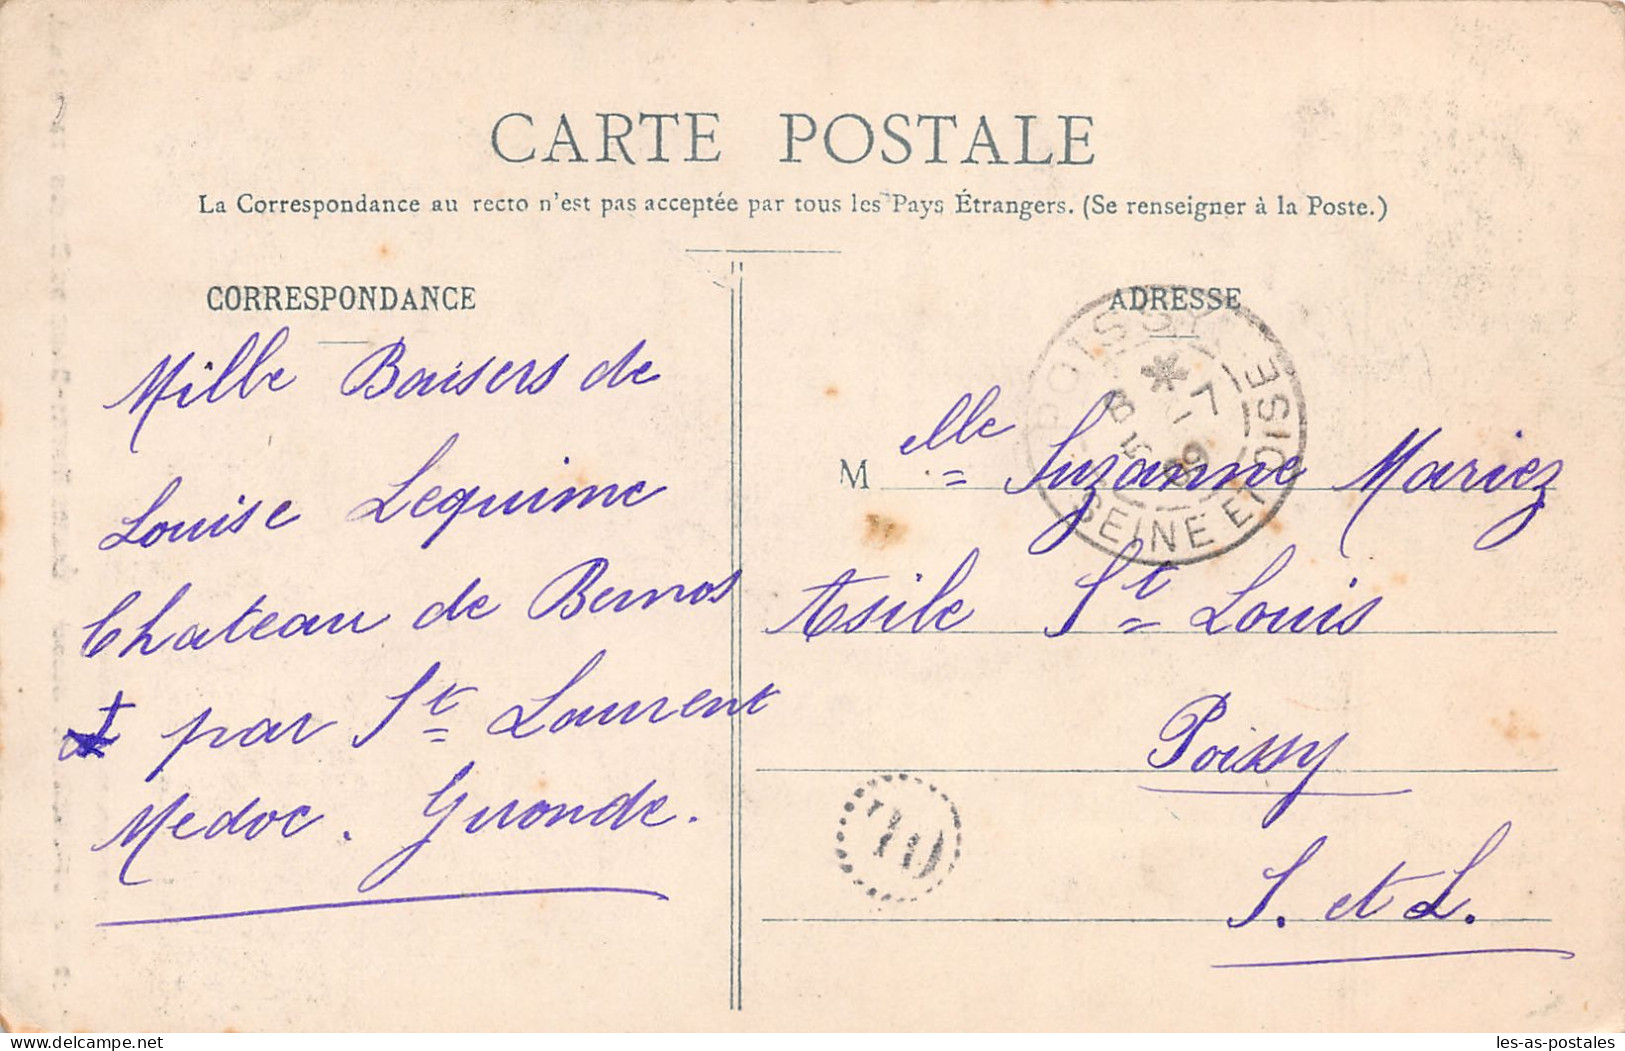 CARTE POSTALE
La Correspondance au recto n'est pas acceptée par tous les Pays Étrangers. (Se renseigner à la Poste.)
CORRESPONDANCE
Mille Baisers de
Louise Lequime
Chateau de Bernos
par St Laurent
Medoc. Gironde.
ADRESSE
Melle Suzanne Mariez
Asile St Louis
Poissy
S. et L.
POISSY
8 -7
09
SEINE ET OISE
delcampe.net
les-as-postales